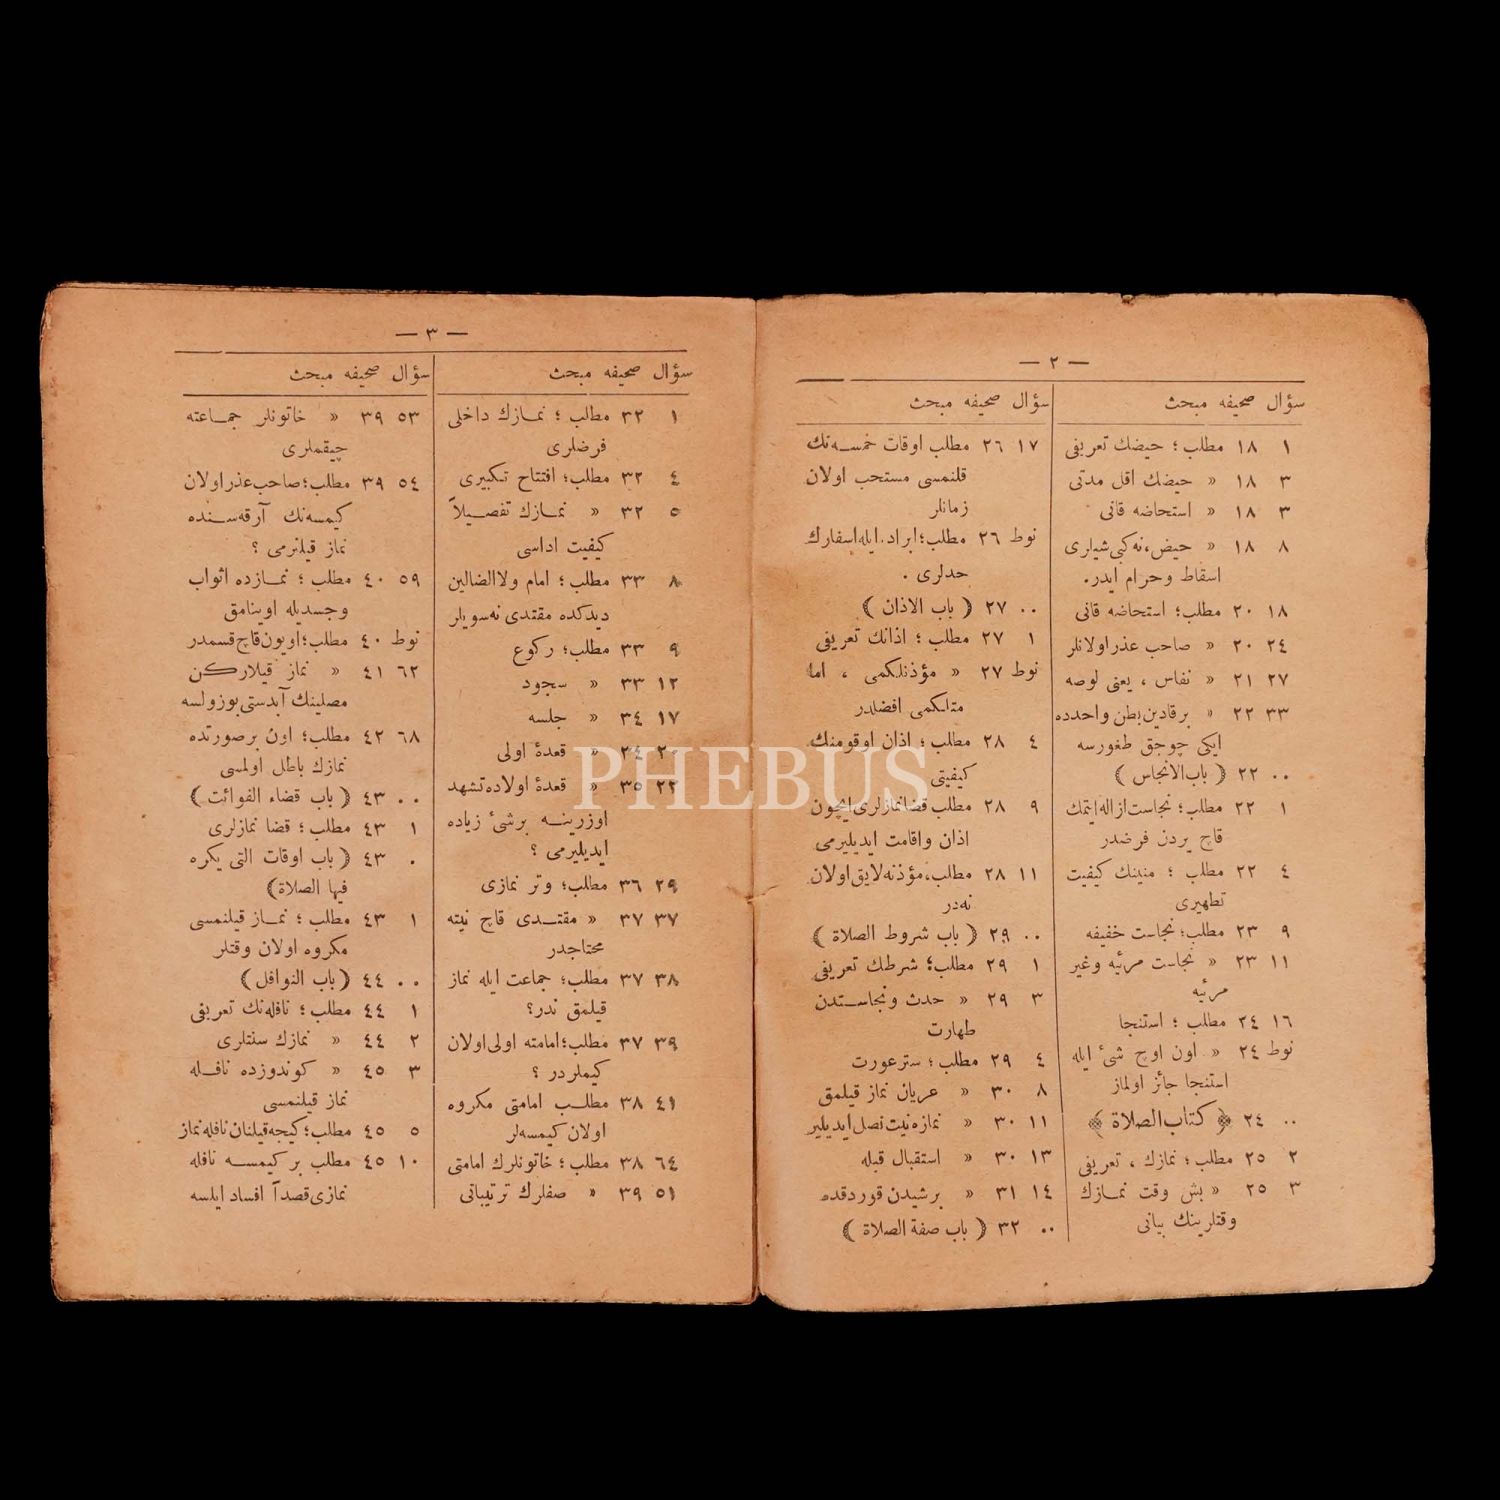 — ٢ —
سؤال صحيفه مبحث
١ ١٨ مطلب ؛ حيضك تعريفى
٣ ١٨ « حيضك اقل مدتى
٣ ١٨ « استحاضه قانى
٨ ١٨ « حيض، نه كبى شيارى
اسقاط وحرام ايدر.
١٨ ٢٠ مطلب؛ استحاضه قانى
٢٤ ٢٠ « صاحب عذر اولانلر
٢٧ ٢١ « نفاس ، يعنى لوصه
٣٣ ٢٢ « برقادين بطن واحدده
ايكى چوجق طغورسه
٠٠ ٢٢ ( باب الانجاس )
١ ٢٢ مطلب؛ نجاست ازاله ايتمك
قاچ يردن فرضدر
٤ ٢٢ مطلب ؛ منينك كيفيت
تطهيرى
٩ ٢٣ مطلب؛ نجاست خفيفه
١١ ٢٣ « نجاست مرئيه وغير
مرئيه
١٦ ٢٤ مطلب ؛ استنجا
نوط ٢٤ « اون اوچ شئ ايله
استنجا جائز اولماز
٠٠ ٢٤ ﴿ كتاب الصلاة ﴾
٢ ٢٥ مطلب ؛ نمازك ، تعريفى
٣ ٢٥ « بش وقت نمازك
وقتلرينك بيانى
سؤال صحيفه مبحث
١٧ ٢٦ مطلب اوقات خمسه نك
قلنمسى مستحب اولان
زمانلر
نوط ٢٦ مطلب؛ ابراد، ايله اسفارك
حدلرى .
٠٠ ٢٧ ( باب الاذان )
١ ٢٧ مطلب ؛ اذانك تعريفى
نوط ٢٧ « مؤذنلكمى ، اما
متلكمى افضلدر
٤ ٢٨ مطلب ؛ اذان اوقومنك
كيفيتى
٩ ٢٨ مطلب قضا نمازلرى ايچون
اذان واقامت ايديليرمى
١١ ٢٨ مطلب، مؤذنه لايق اولان
نه در
٠٠ ٢٩ ( باب شروط الصلاة )
١ ٢٩ مطلب؛ شرطك تعريفى
٣ ٢٩ « حدث ونجاستدن
طهارت
٤ ٢٩ مطلب ؛ ستر عورت
٨ ٣٠ « عريان نماز قيلمق
١١ ٣٠ « نمازه نيت نصل ايديلير
١٣ ٣٠ « استقبال قبله
١٤ ٣١ « برشيدن قوردقده
٠٠ ٣٢ ( باب صفة الصلاة )
— ٣ —
سؤال صحيفه مبحث
١ ٣٢ مطلب ؛ نمازك داخلى
فرضلرى
٤ ٣٢ مطلب؛ افتتاح تكبيرى
٥ ٣٢ « نمازك تفصيلاً
كيفيت اداسى
٨ ٣٣ مطلب ؛ امام ولا الضالين
ديدكده مقتدى نه سويلر
٩ ٣٣ مطلب؛ ركوع
١٢ ٣٣ « سجود
١٧ ٣٤ « جلسه
٢٠ ٣٤ « قعدۀ اولى
٢٢ ٣٥ « قعدۀ اولاده تشهد
اوزرينه برشئ زياده
ايديليرمى ؟
٢٩ ٣٦ مطلب؛ وتر نمازى
٣٧ ٣٧ « مقتدى قاچ نيته
محتاجدر
٣٨ ٣٧ مطلب؛ جماعت ايله نماز
قيلمق ندر؟
٣٩ ٣٧ مطلب؛ امامته اولى اولان
كيملردر ؟
٤١ ٣٨ مطلب امامتى مكروه
اولان كيمسه لر
٦٤ ٣٨ مطلب ؛ خاتونلرك امامتى
٥١ ٣٩ « صفلرك ترتيباتى
سؤال صحيفه مبحث
٥٣ ٣٩ « خاتونلر جماعته
چيقملرى
٥٤ ٣٩ مطلب؛ صاحب عذر اولان
كيمسه نك آرقه سنده
نماز قيلنرمى ؟
٥٩ ٤٠ مطلب ؛ نمازده اثواب
وجسديله اوينامق
نوط ٤٠ مطلب؛ اويون قاچ قسمدر
٦٢ ٤١ « نماز قيلاركن
مصلينك آبدستى بوزولسه
٦٨ ٤٢ مطلب؛ اون برصورتده
نمازك باطل اولمسى
٠٠ ٤٣ ( باب قضاء الفوائت )
١ ٤٣ مطلب ؛ قضا نمازلرى
٠ ٤٣ ( باب اوقات التى يكره
فيها الصلاة)
١ ٤٣ مطلب ؛ نماز قيلنمسى
مكروه اولان وقتلر
٠٠ ٤٤ (باب النوافل )
١ ٤٤ مطلب ؛ نافله نك تعريفى
٢ ٤٤ « نمازك سنتلرى
٣ ٤٥ « كوندوزده نافله
نماز قيلنمسى
٥ ٤٥ مطلب؛ كيجه قيلنان نافله نماز
١٠ ٤٥ مطلب بر كيمسه نافله
نمازى قصداً افساد ايلسه
PHEBUS